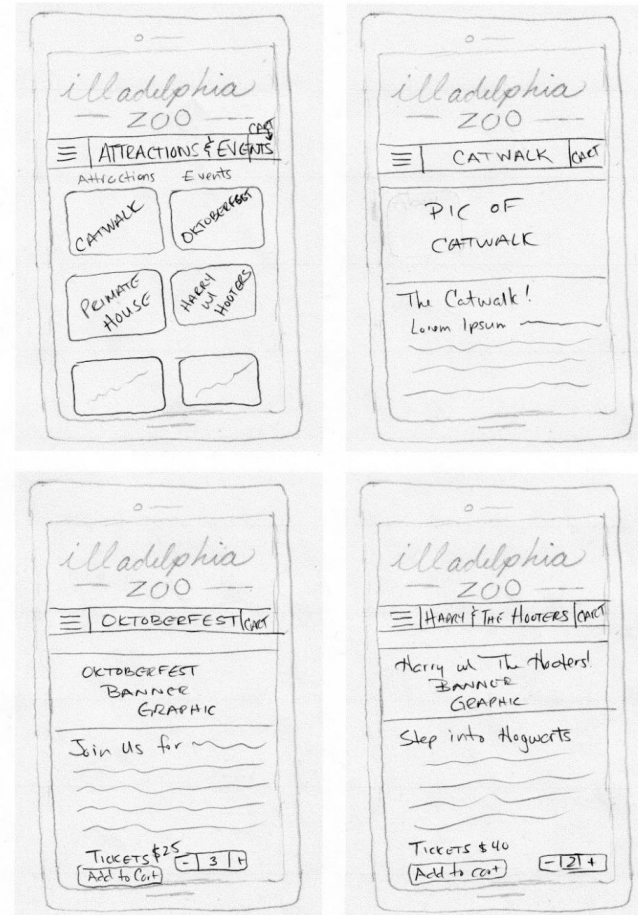 illadelphia
ZOO
CART
ATTRACTIONS & EVENTS
Attractions Events
CATWALK
OKTOBERFEST
PRIMATE
HOUSE
HARRY
W/
HOOTERS
illadelphia
ZOO
CATWALK CART
PIC OF
CATWALK
The Catwalk!
Lorem Ipsum
illadelphia
ZOO
OKTOBERFEST CART
OKTOBERFEST
BANNER
GRAPHIC
Join Us for
TICKETS $25
Add to Cart - 3 +
illadelphia
ZOO
HARRY & THE HOOTERS CART
Harry w/ The Hooters!
BANNER
GRAPHIC
Step into Hogwarts
TICKETS $40
Add to cart - 2 +